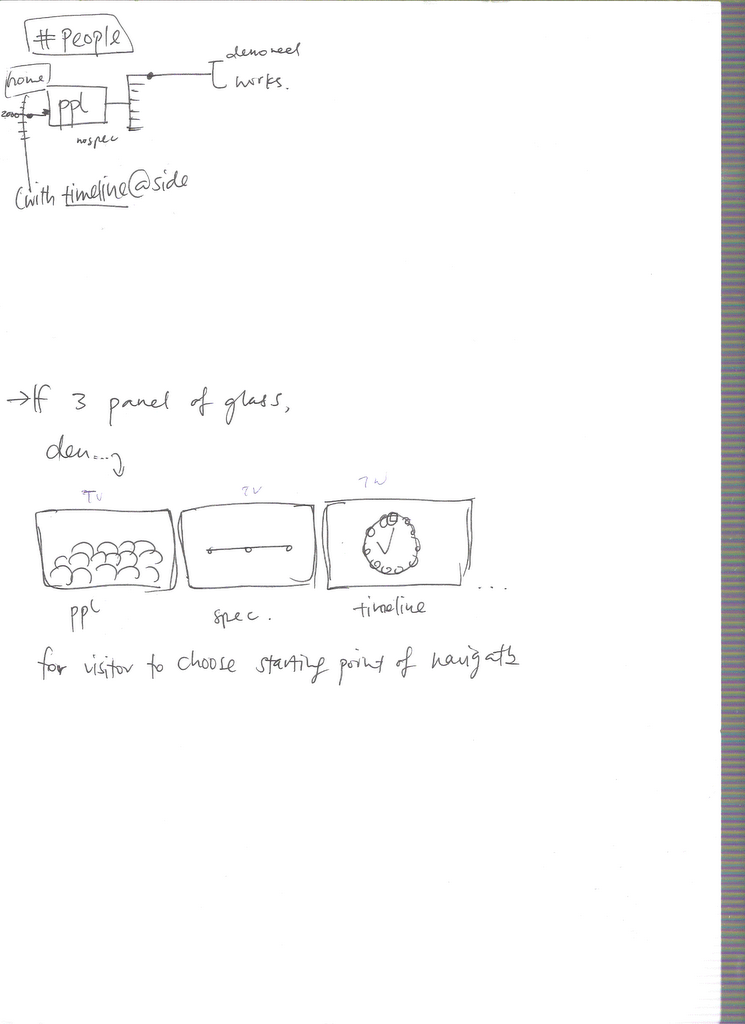 # People
home
demoreel
works.
2000
ppl
nospec
(with timeline@side
→If 3 panel of glass,
den...
TV TV TV
ppl spec. timeline ...
for visitor to choose starting point of